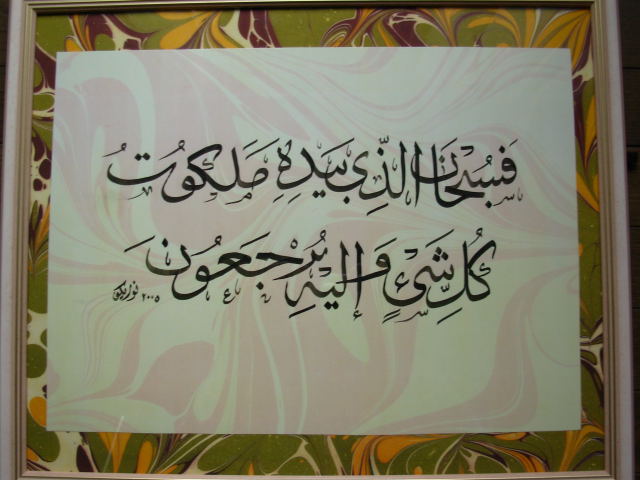 فَسُبْحَانَ الَّذِي بِيَدِهِ مَلَكُوتُ
كُلِّ شَيْءٍ وَإِلَيْهِ تُرْجَعُونَ
٢٠٠٥